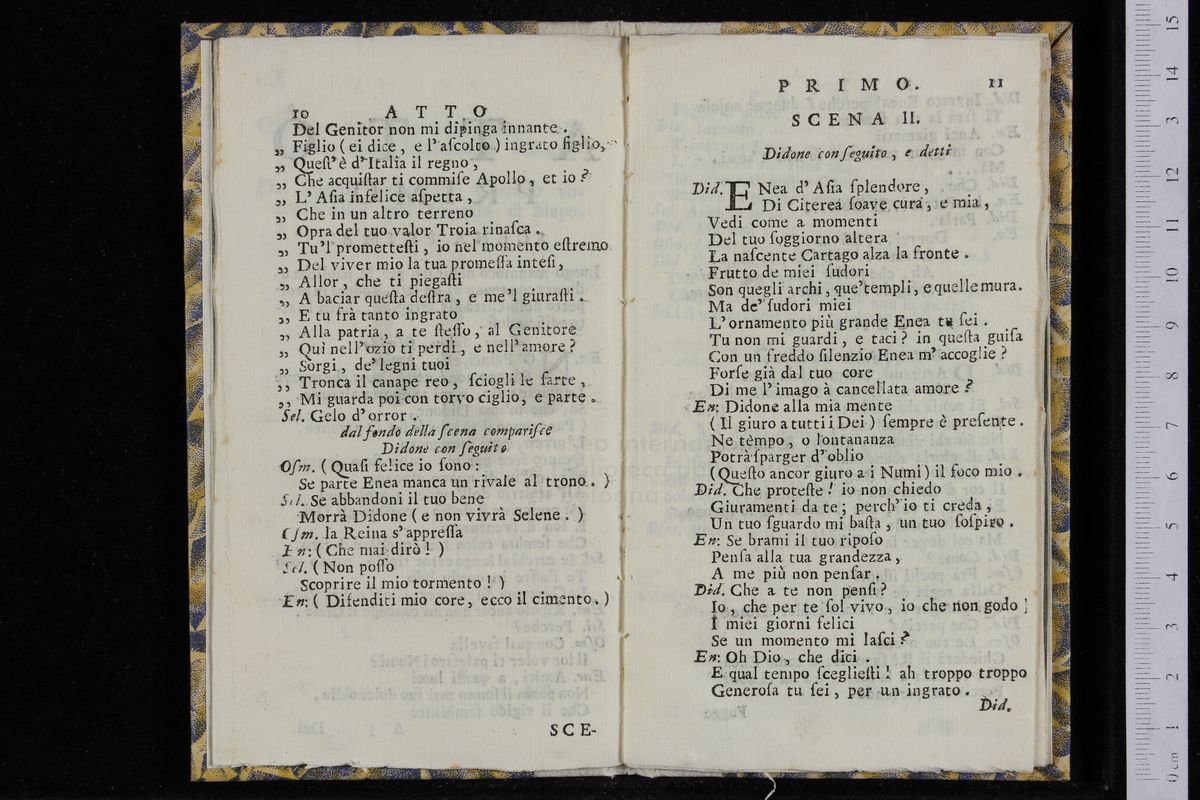 10 ATTO
Del Genitor non mi dipinga innante.
„ Figlio (ei dice, e l'aſcolto) ingrato figlio,
„ Queſt'è d'Italia il regno,
„ Che acquiſtar ti commiſe Apollo, et io?
„ L'Aſia infelice aſpetta,
„ Che in un altro terreno
„ Opra del tuo valor Troia rinaſca.
„ Tu'l prometteſti, io nel momento eſtremo
„ Del viver mio la tua promeſſa inteſi,
„ Allor, che ti piegaſti
„ A baciar queſta deſtra, e me'l giuraſti.
„ E tu frà tanto ingrato
„ Alla patria, a te ſteſſo, al Genitore
„ Quì nell'ozio ti perdi, e nell'amore?
„ Sorgi, de'legni tuoi
„ Tronca il canape reo, ſciogli le ſarte,
„ Mi guarda poi con torvo ciglio, e parte.
Sel. Gelo d'orror.
dal fondo della ſcena compariſce
Didone con ſeguito
Oſm. (Quaſi felice io ſono:
Se parte Enea manca un rivale al trono.)
Sel. Se abbandoni il tuo bene
Morrà Didone (e non vivrà Selene.)
Oſm. la Reina s'appreſſa
En: (Che mai dirò!)
Sel. (Non poſſo
Scoprire il mio tormento!)
En: (Difenditi mio core, ecco il cimento.)
SCE-
PRIMO. 11
SCENA II.
Didone con ſeguito, e detti
Did. ENea d'Aſia ſplendore,
Di Citerea ſoave cura, e mia,
Vedi come a momenti
Del tuo ſoggiorno altera
La naſcente Cartago alza la fronte.
Frutto de miei ſudori
Son quegli archi, que'templi, e quelle mura.
Ma de'ſudori miei
L'ornamento più grande Enea tu ſei.
Tu non mi guardi, e taci? in queſta guiſa
Con un freddo ſilenzio Enea m'accoglie?
Forſe già dal tuo core
Di me l'imago à cancellata amore?
En: Didone alla mia mente
(Il giuro a tutti i Dei) ſempre è preſente.
Ne tèmpo, o lontananza
Potrà ſparger d'oblio
(Queſto ancor giuro a i Numi) il foco mio.
Did. Che proteſte! io non chiedo
Giuramenti da te; perch'io ti creda,
Un tuo ſguardo mi baſta, un tuo ſoſpiro.
En: Se brami il tuo ripoſo
Penſa alla tua grandezza,
A me più non penſar.
Did. Che a te non penſi?
Io, che per te ſol vivo, io che non godo
I miei giorni felici
Se un momento mi laſci?
En: Oh Dio, che dici.
E qual tempo ſceglieſti! ah troppo troppo
Generoſa tu ſei, per un ingrato.
Did.